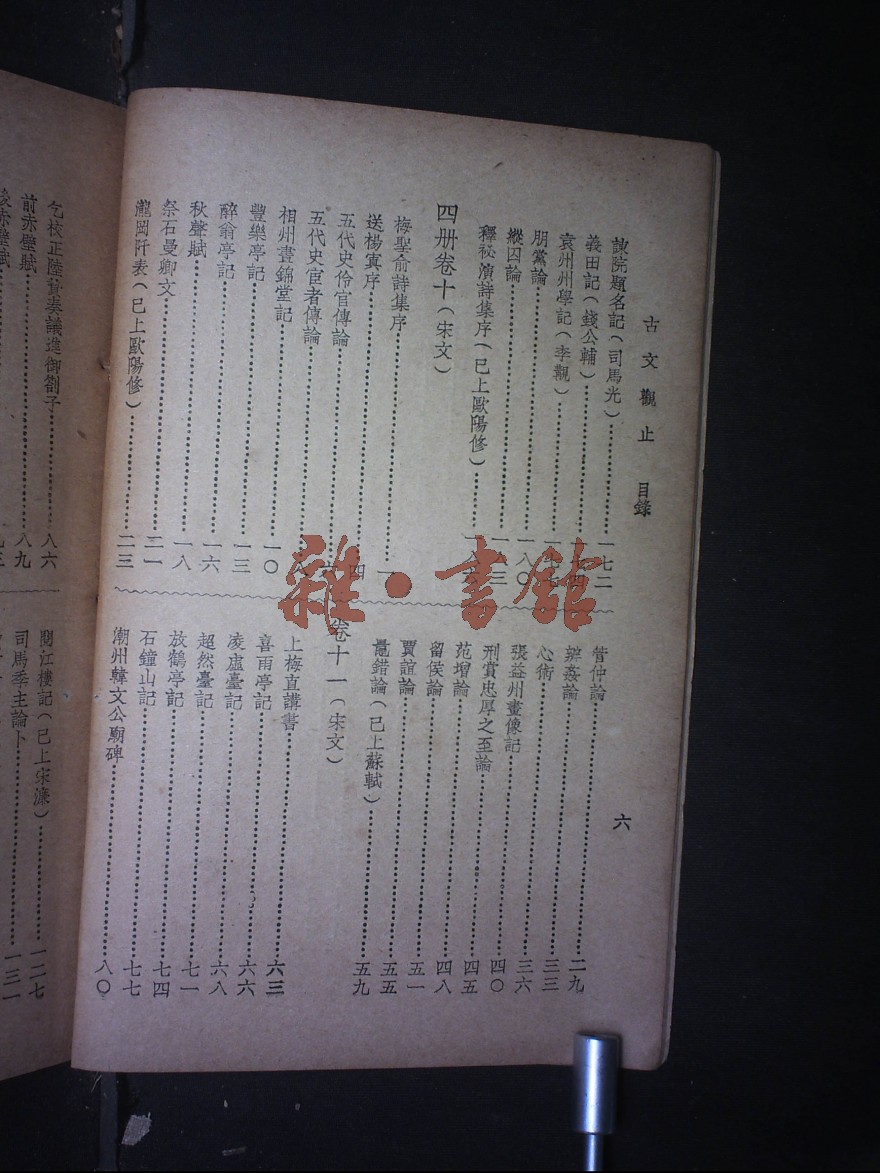 古文觀止 目錄
六
諫院題名記（司馬光）一七二
義田記（錢公輔）一七四
袁州州學記（李覯）一七七
朋黨論一八〇
縱囚論一八三
釋祕演詩集序（已上歐陽修）一八六
四册卷十（宋文）
梅聖俞詩集序一
送楊寘序四
五代史伶官傳論六
五代史宦者傳論八
相州晝錦堂記一〇
豐樂亭記一三
醉翁亭記一六
秋聲賦一八
祭石曼卿文二一
瀧岡阡表（已上歐陽修）二三
管仲論二九
辨姦論
心術三三
張益州畫像記三六
刑賞忠厚之至論四〇
范增論四五
留侯論四八
賈誼論五一
鼂錯論（已上蘇軾）五五
五九
卷十一（宋文）
上梅直講書六三
喜雨亭記六六
凌虛臺記六八
超然臺記七一
放鶴亭記七四
石鐘山記七七
潮州韓文公廟碑八〇
乞校正陸贄奏議進御劄子八六
前赤壁賦八九
後赤壁賦九三
閱江樓記（已上宋濂）一二七
司馬季主論卜一三一
雜·書館